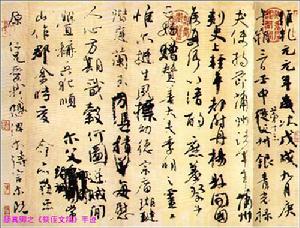 維乾元元年歲次戊戌九月庚
朔三日壬申第十三叔銀青光祿
夫使持節蒲州諸軍事蒲州
刺史上輕車都尉丹楊縣開國
侯真卿以清酌庶羞祭于
亡姪贈贊善大夫季明之靈
惟爾挺生夙標幼德宗廟瑚璉
階庭蘭玉每慰
人心方期戩穀何圖逆賊間
釁稱兵犯順爾父
山作郡余時受命亦在平
原仁兄愛我俾爾傳言爾既
颜真卿之《祭侄文稿》手迹